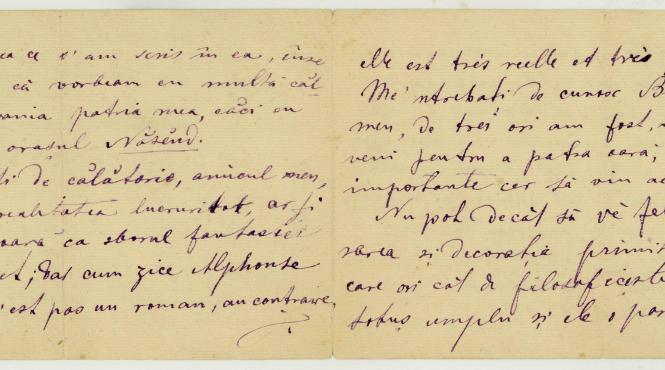 ce v'am scris în ea, însę
că vorbeam cu multă căl-
patria mea, căci eu
orașul Năsĕud.
de călătorie, amicul meu,
lucrurilor, ar fi
ca sborul fantasiei
dar cum zice Alphonse
est pas un roman, au contraire,
elle est très réelle et très
Mĕ 'ntrebați de cunosc B
men, de trei ori am fost,
veni pentru a patra oară;
importante cer să vin
Nu pot decât să vĕ
și decorația
care ori cât de
totuș umplu și ele o